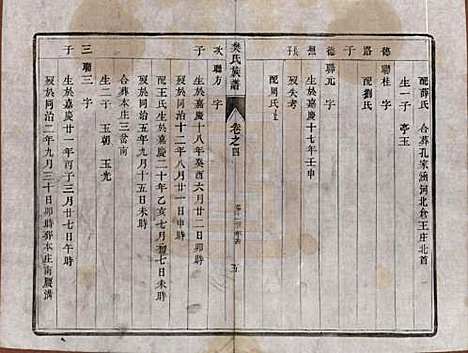 配薛氏 合葬孔家涵河北倉王庄北首
生一子 亭玉
德聯桂 字
路 配劉氏
子
德聯元 字
無 生於嘉慶十七年壬申
張 歿失考
配周氏
樊氏族譜
卷之四
五
次聯方 字
子 生於嘉慶十八年癸酉六月廿二日卯時
歿於同治十二年八月廿一日申時
配王氏生於嘉慶二十年乙亥七月初七日未時
歿於同治五年九月十五日未時
合葬本庄三岔南
生二子 玉朝 玉光
三聯三 字
子 生於嘉慶廿一年丙子三月廿七日午時
歿於同治二年九月三十日卯時葬本庄南